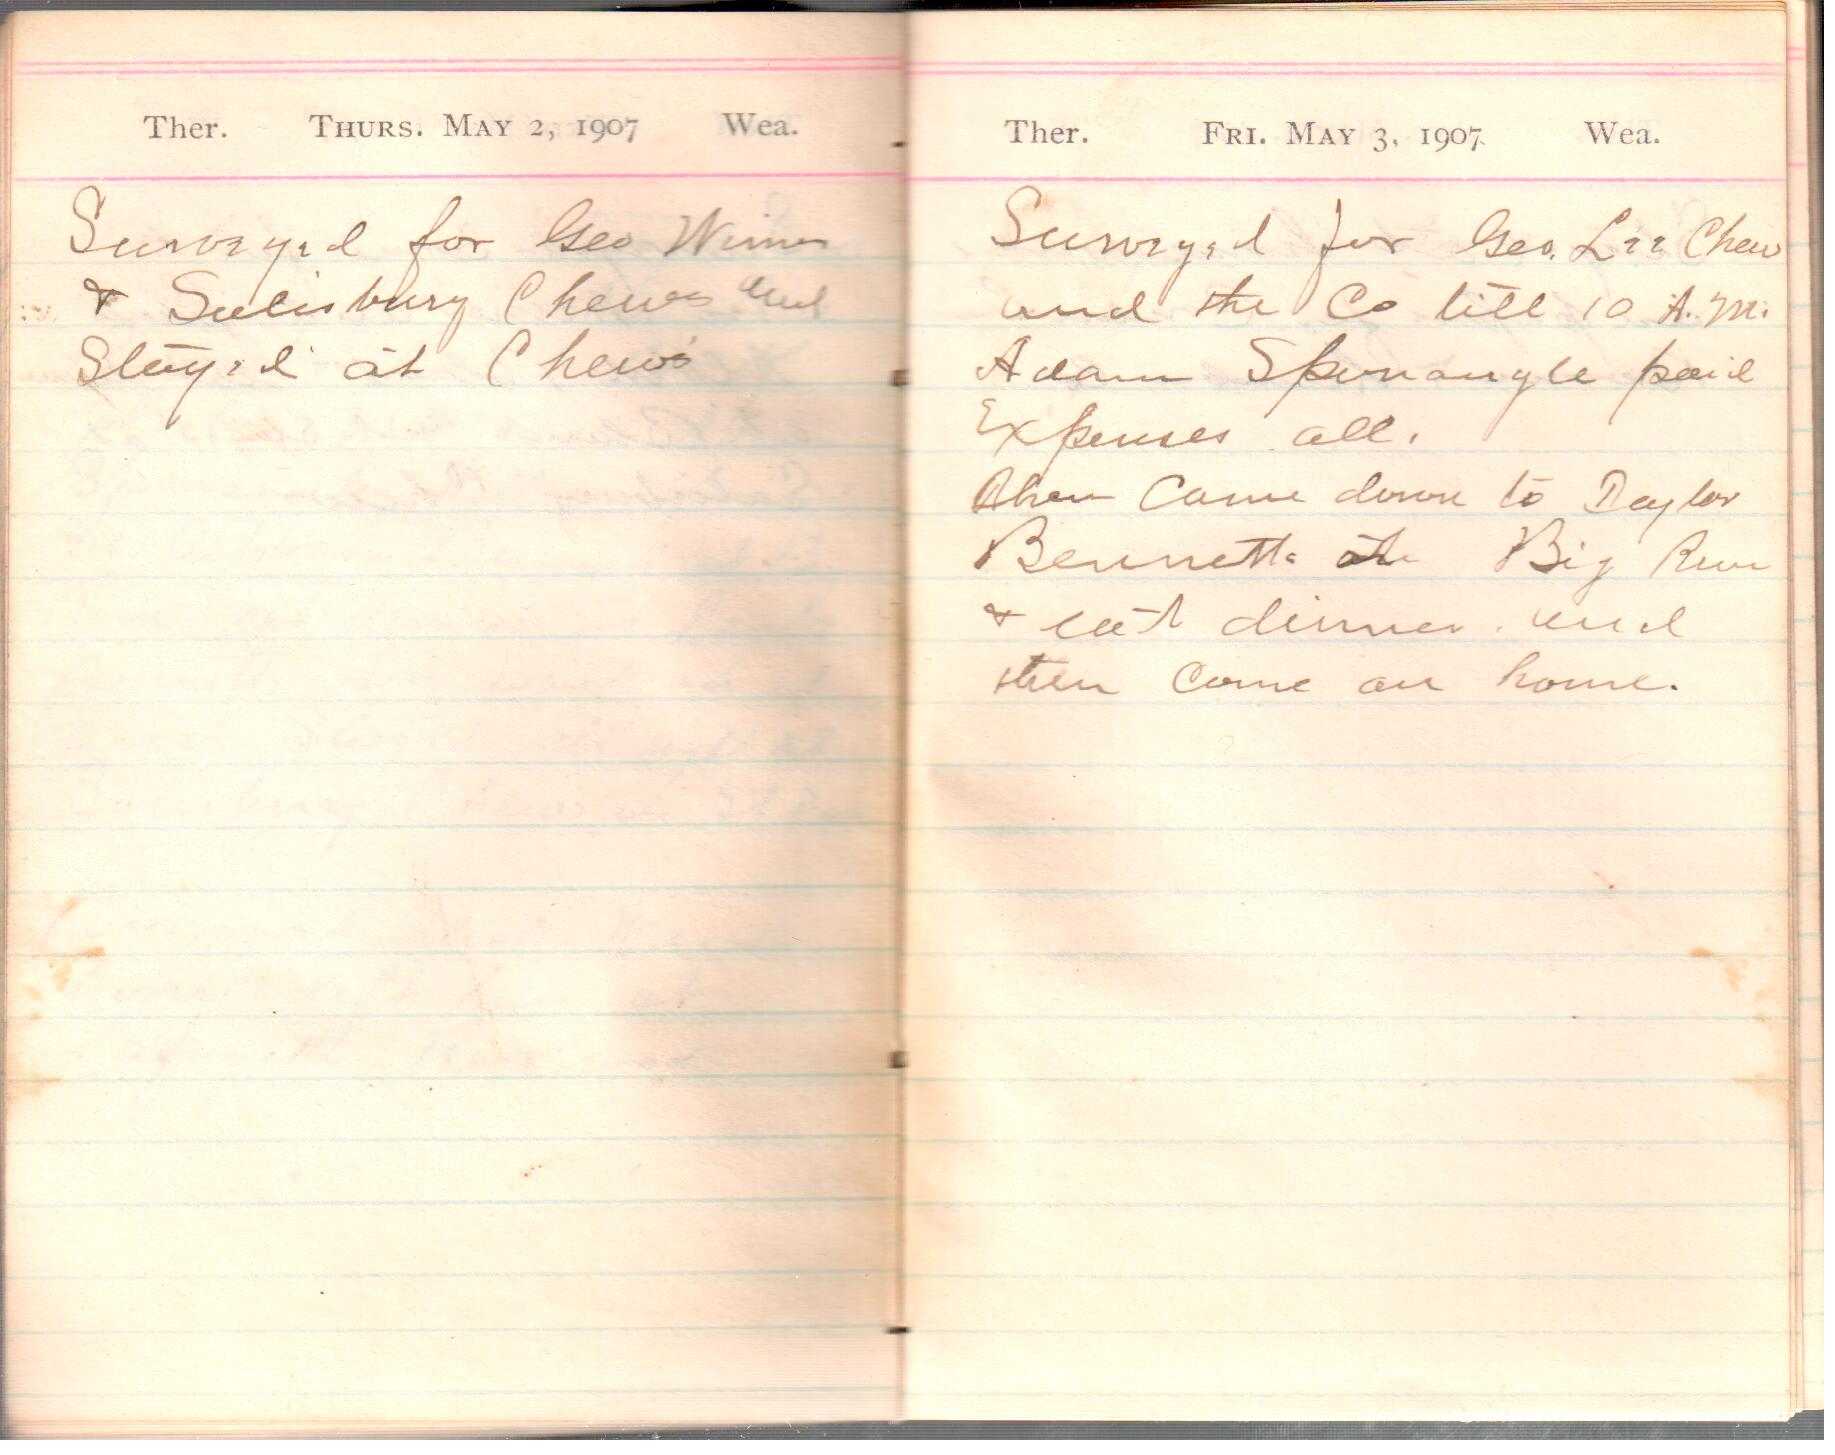 Ther. THURS. MAY 2, 1907 Wea.
Surveyed for Geo Wimer
& Salisbury Chews and
Stayed at Chews
Ther. FRI. MAY 3, 1907 Wea.
Surveyed for Geo. Lee Chew
and the Co till 10 A.M.
Adam Sponaugle paid
Expenses all.
Then Came down to Taylor
Bennetts Big Run
& eat dinner. and
then Come on home.